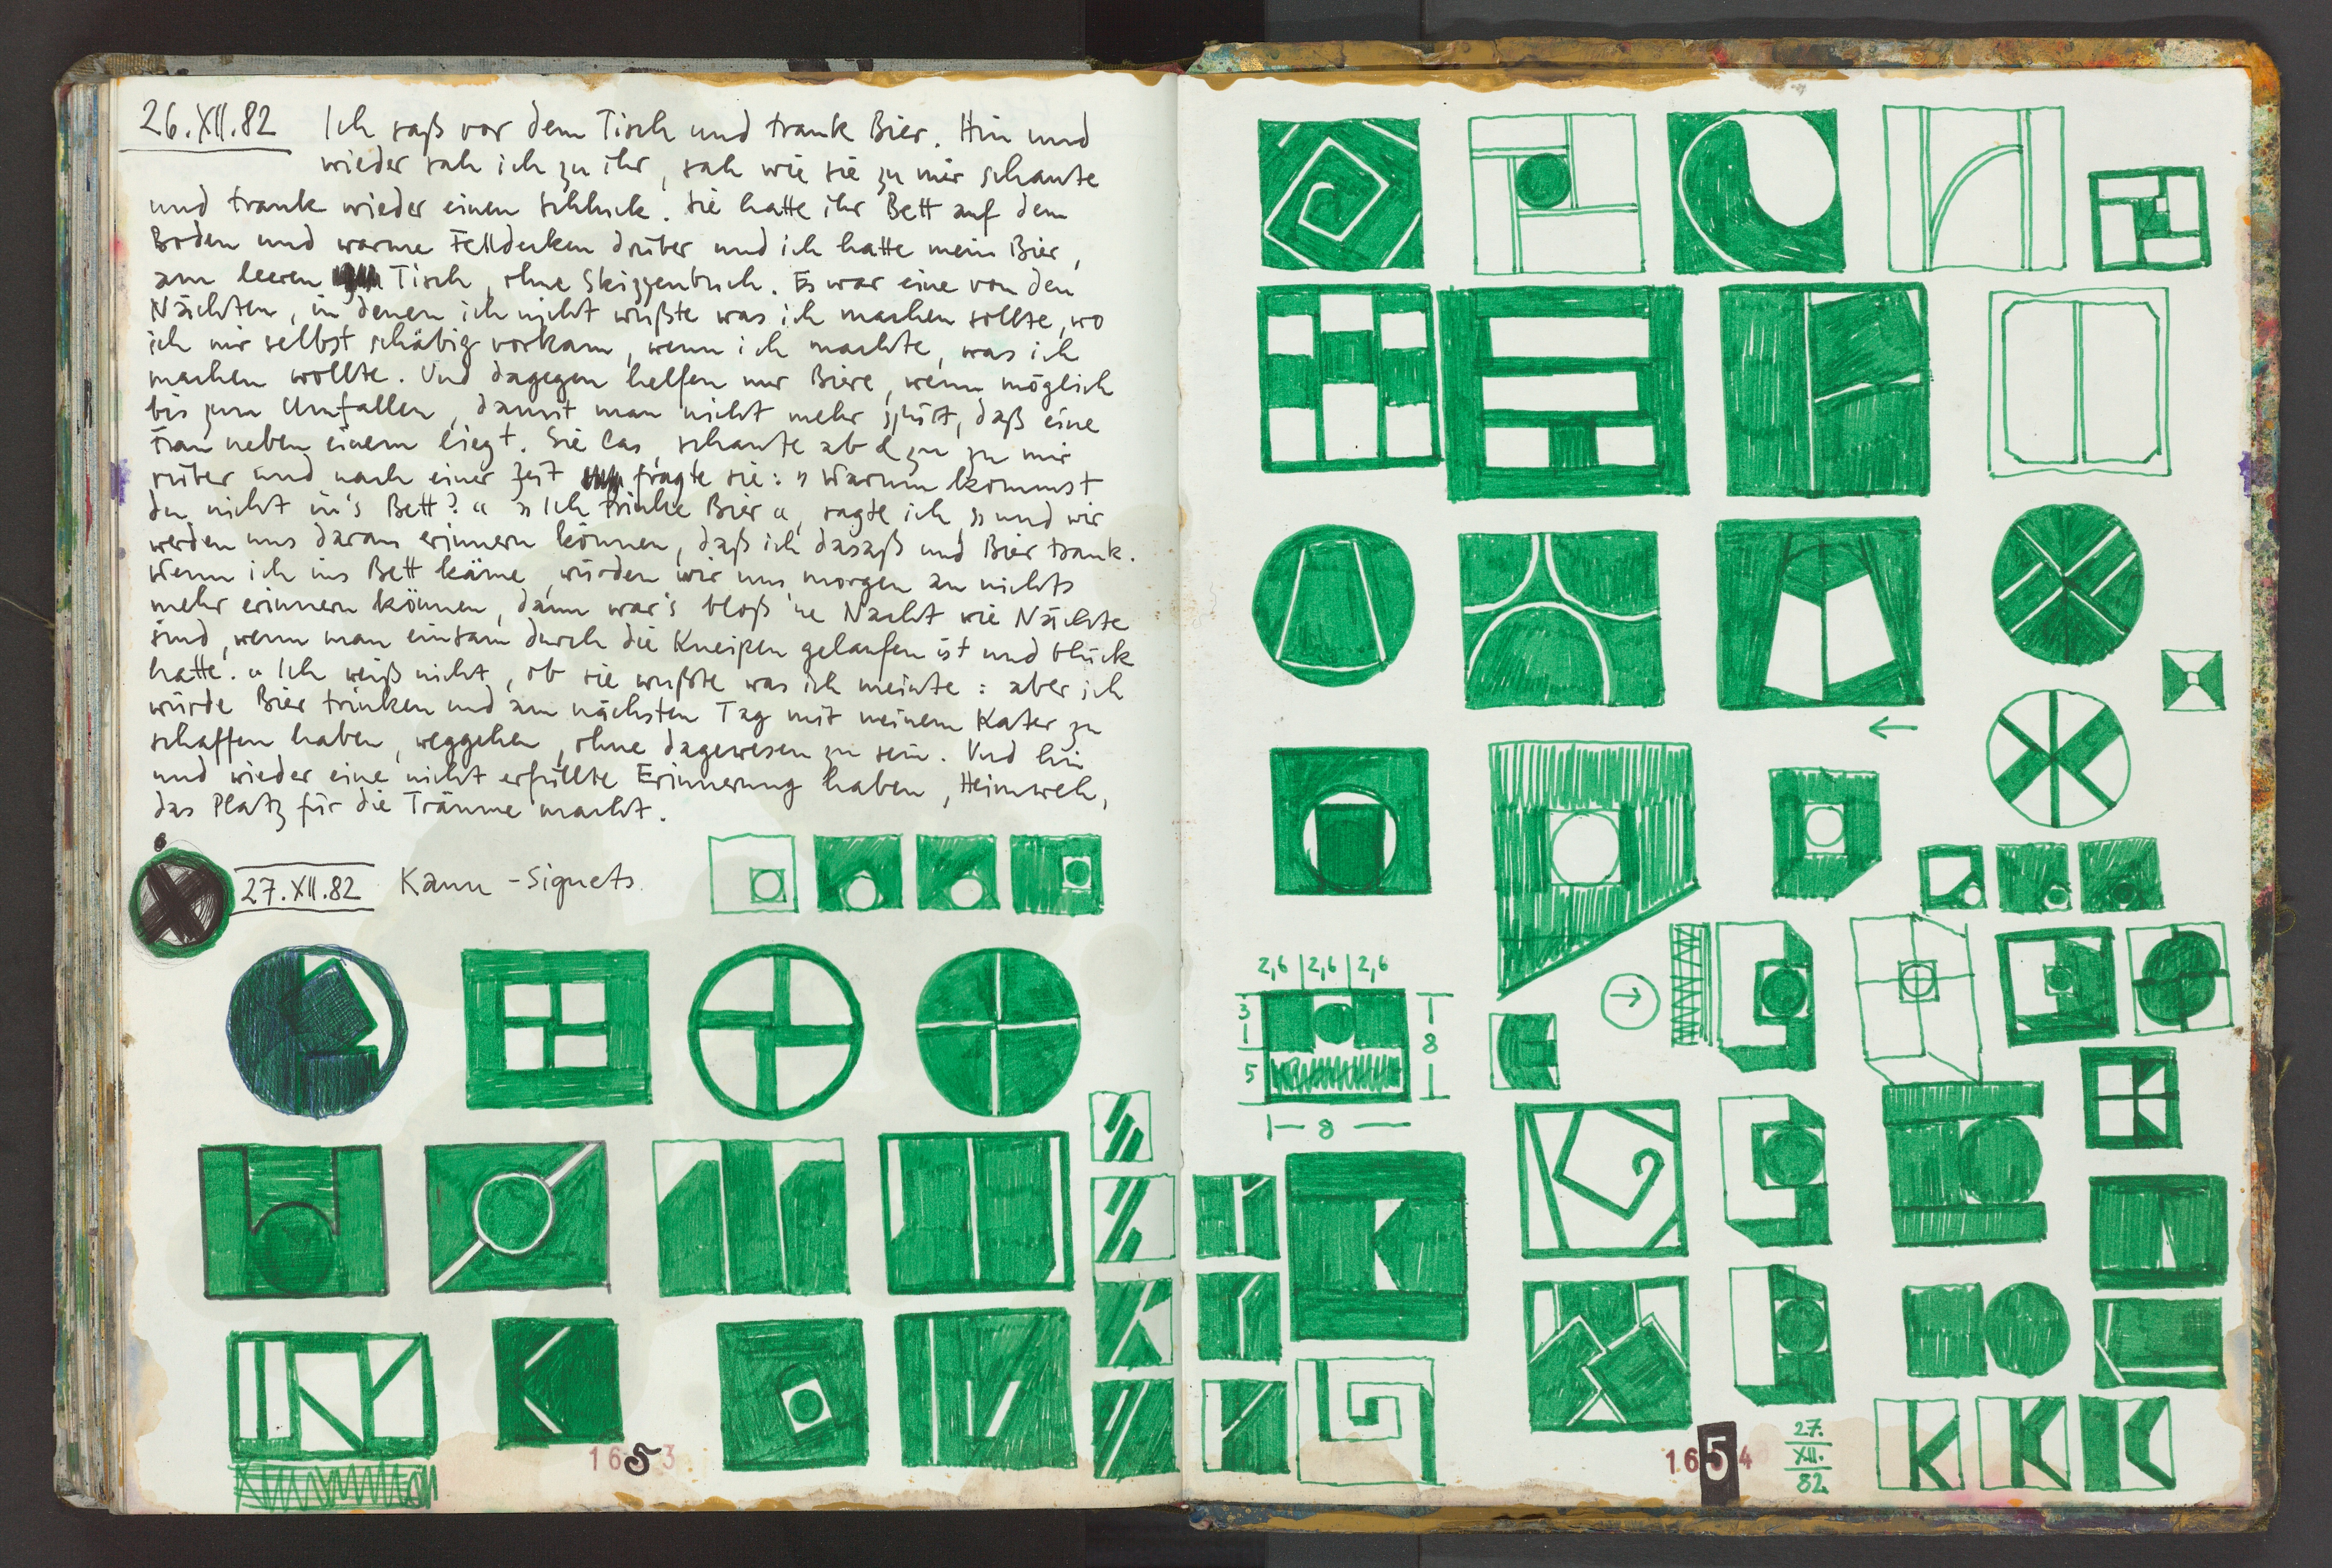 26.XII.82 Ich saß vor dem Tisch und trank Bier. Hin und
wieder sah ich zu ihr, sah wie sie zu mir schaute
und trank wieder einen Schluck. Sie hatte ihr Bett auf dem
Boden und warme Felldecken drüber und ich hatte mein Bier,
am leeren Tisch, ohne Skizzenbuch. Es war eine von den
Nächten, in denen ich nicht wußte was ich machen sollte, wo
ich mir selbst schäbig vorkam, wenn ich machte, was ich
machen wollte. Und dagegen helfen nur Biere, wenn möglich
bis zum Umfallen, damit man nicht mehr spürt, daß eine
Frau neben einem liegt. Sie las, schaute ab & zu zu mir
rüber und nach einer Zeit fragte sie: "Warum kommst
du nicht in's Bett?" "Ich trinke Bier", sagte ich, "und wir
werden uns daran erinnern können, daß ich dasaß und Bier trank.
Wenn ich ins Bett käme, würden wir uns morgen an nichts
mehr erinnern können, dann war's bloß 'ne Nacht wie Nächte
sind, wenn man einsam durch die Kneipen gelaufen ist und Glück
hatte." Ich weiß nicht, ob sie wußte was ich meinte: aber ich
würde Bier trinken und am nächsten Tag mit meinem Kater zu
schaffen haben, weggehen, ohne dagewesen zu sein. Und hin
und wieder eine nicht erfüllte Erinnerung haben, Heimweh,
das Platz für die Träume macht.
27.XII.82 Kann-Signets.
1653
2,6 | 2,6 | 2,6
3
5
8
8
K
K
1654
27.
XII.
82
K K K